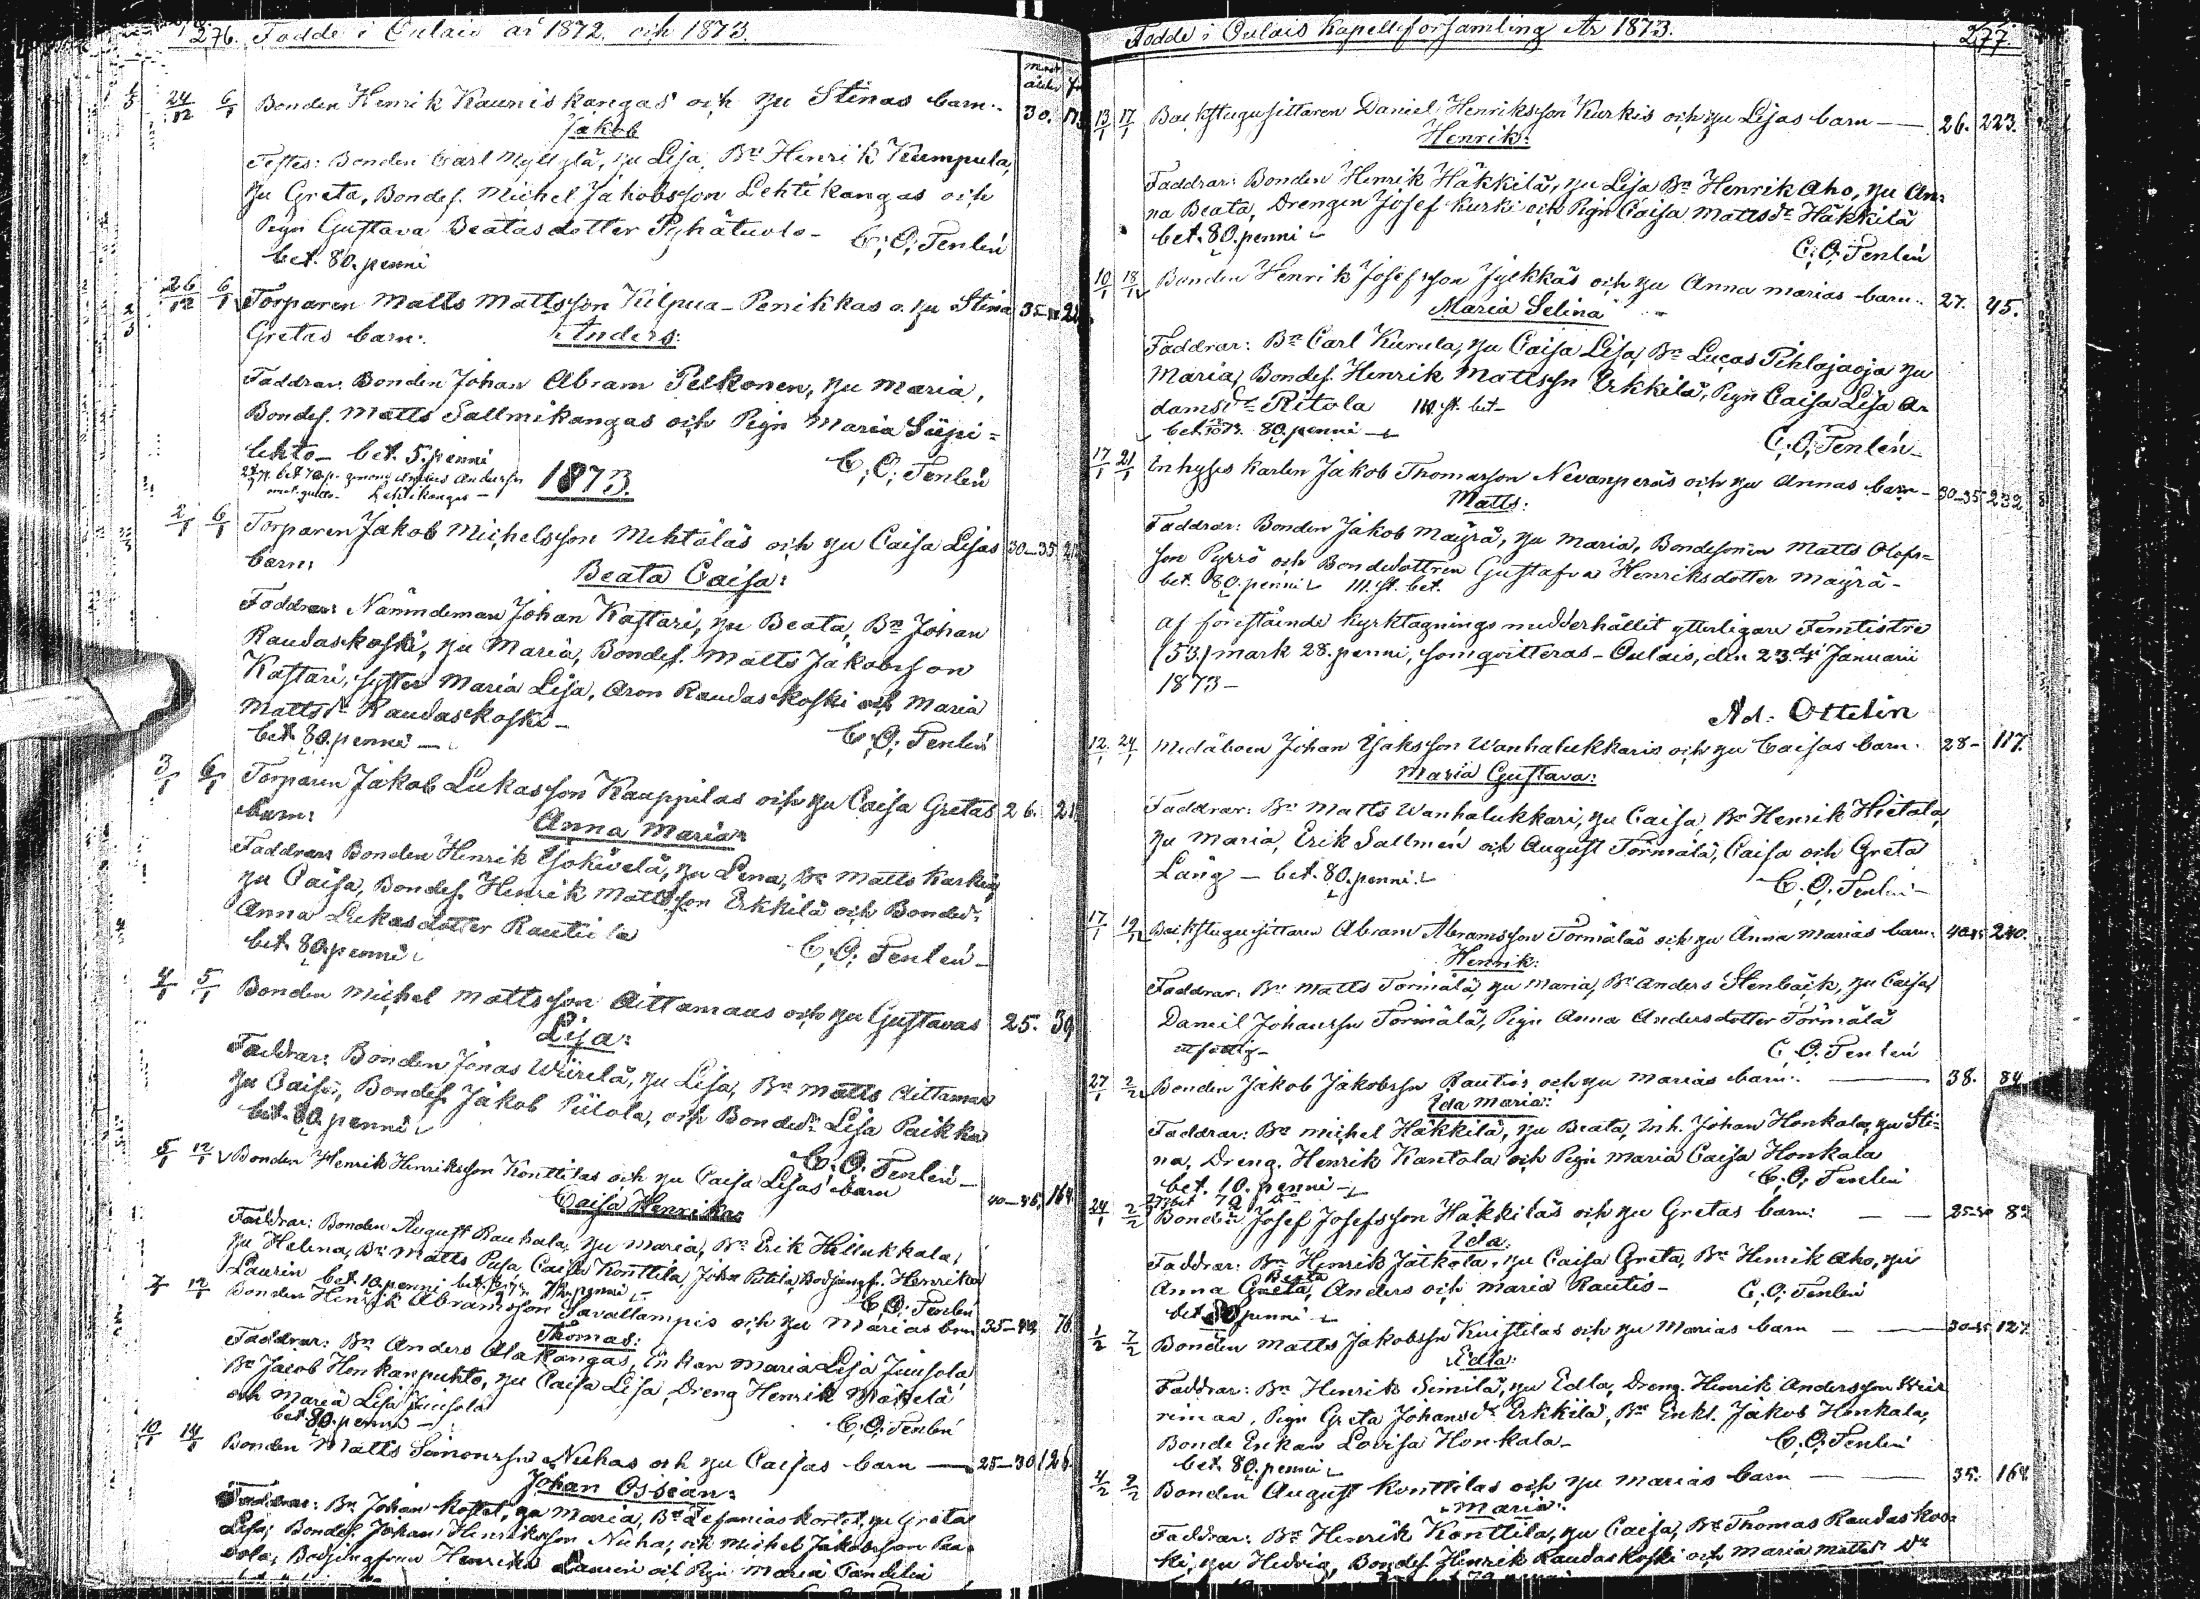 276. Födde i Oulais år 1872. och 1873.
24/12 6/1 Bonden Henrik Kauniskangas och Hu Stinas barn. 30.
Jakob
Testes: Bonden Carl Myllylä, Hu Lisa, Bn Henrik Kumpula,
Hu Greta, Bondes. Michel Jakobsson Lehtikangas och
Pign Gustava Beatasdotter Pyhätuolo - C; O; Tenlén
bet. 80. penni
26/12 6/1 Torparen Matts Mattsson Kilpua-Penikkas o. Hu Stina
Gretas barn: Anders:
Faddrar: Bonden Johan Abram Pelkonen, Hu Maria,
Bondes. Matts Sallmikangas och Pign Maria Siipi=
lehto - bet. 5. penni C; O; Tenlén
1873.
2/1 6/1 Torparen Jakob Michelsson Mehtäläs och Hu Caisa Lisas 30-35
barn:
Beata Caisa:
Faddrar: Nämndeman Johan Kastari, Hu Beata, Bn Johan
Raudaskoski, Hu Maria, Bondes. Matts Jakobsson
Kastari, syster Maria Lisa, Aron Raudaskoski och Maria
Mattsdr Raudaskoski -
bet. 80. penni - C; O; Tenlén
3/1 6/1 Torparen Jakob Lukasson Kauppilas och Hu Caisa Gretas 26.
barn:
Anna Maria:
Faddrar: Bonden Henrik Yjokivelä, Hu Lena, Bn Matts
Hu Caisa, Bondes. Henrik Mattsson Erkkilä och Bondedr
Anna Lukasdotter Rautiola
bet. 80. penni C; O; Tenlén -
4/1 5/1 Bonden Michel Mattsson Aittamaas och Hu Gustavas 25. 39
Lisa:
Faddrar: Bonden Jonas Wiirelä, Hu Lisa, Bn Matts Aittamaa
Hu Caisa, Bondes. Jakob Piilola, och Bondedr Lisa Paikka
bet. 80. penni C. O. Tenlén -
5/1 12/1 Bonden Henrik Henriksson Konttilas och Hu Caisa Lisas barn 164
Caisa Henrika:
Faddrar: Bonden August Raukala, Hu Maria, Bn Erik Hillukkala,
Hu Helena, Bn Matts Pusa Caisa Konttila, Johan Bodjungfr. Henrika
Laurin bet. 10. penni C; O; Tenlén
7/1 12/1 Bonden Henrik Abramsson Savallampis och Hu Marias barn 76
Thomas:
Faddrar: Bn Anders Alakangas, Enkan Maria Lisa Juusola
Bn Jacob Honkanpuhto, Hu Caisa Lisa, Dreng Henrik Mäkelä
och Maria Lisa Juusola
bet. 80. penni - C; O; Tenlén
10/1 14/1 Bonden Matts Simonsson Nuhas och Hu Caisas barn - 25-30 126.
Johan Ossian:
Faddrar: Bn Johan Kottet, Hu Maria, Bn Hu Greta
Lisa; Bondes. Johan Henriksson Nuha, och Michel Jakobsson
Bodjungfrun Henrika Laurin och Pign Maria Tandelin
Födde i Oulais Kapellsförsamling År 1873. 277.
13/1 17/1 Backstugusittaren Daniel Henriksson Kurkis och Hu Lisas barn - 26. 223.
Henrik:
Faddrar: Bonden Henrik Häkkilä, Hu Lisa Bn Henrik Aho, Hu An=
na Beata, Drengen Josef Kurki och Pign Caisa Mattsdr Häkkilä
bet. 80. penni C; O; Tenlén
10/1 18/1 Bonden Henrik Josefsson Jylkkäs och Hu Anna Marias barn. 27. 45.
Maria Selina
Faddrar: Bn Carl Kurula, Hu Caisa Lisa, Bn Lucas Pihlajaoja Hu
Maria, Bondes. Henrik Mattssn Erkkilä, Pign Caisa Lisa A=
damsdr Ritola
80. penni C; O; Tenlén -
17/1 21/1 Inhyses Karlen Jakob Thomasson Nevanperäs och Hu Annas barn - 30-35 232
Matts:
Faddrar: Bonden Jakob Mäyrä, Hu Maria, Bondesonen Matts Olofs=
son Pyrrö och Bondedottren Gustafva Henriksdotter Mäyrä -
bet. 80. penni
Af förestående Kyrktagnings medel erhållit ytterligare Femtistre
(53) mark 28. penni, som qvitteras - Oulais, den 23. Januarii
1873 -
Ad. Ottelin
12/1 24/1 Medåboen Johan Isaksson Wanhalukkaris och Hu Caisas barn. 28- 117.
Maria Gustava:
Faddrar: Bn Matts Wanhalukkari, Hu Caisa, Bn Henrik Hietala,
Hu Maria, Erik Sallmén och August Törmälä, Caisa och Greta
Lång - bet. 80. penni. C. O; Tenlén -
17/1 Backstugusittaren Abram Abramsson Törmäläs och Hu Anna Marias barn. 240.
Henrik:
Faddrar: Bn Matts Törmälä, Hu Maria, Bn Anders Stenbäck, Hu Caisa,
Daniel Johanssn Törmälä, Pign Anna Andersdotter Törmälä
utfattig - C. O. Tenlén
27/1 2/2 Bonden Jakob Jakobssn Rautios och Hu Marias barn. - 38. 84
Ida Maria:
Faddrar: Bn Michel Häkkilä, Hu Beata, Inh. Johan Honkala, Hu Sti=
na, Dreng. Henrik Kantola och Pign Maria Caisa Honkala
bet. 10. penni - C; O; Tenlén
24/1 2/2 Bonden Josef Josefsson Häkkiläs och Hu Gretas barn: - - 25-30 82
Ida:
Faddrar: Bn Henrik Jätkola, Hu Caisa Greta, Bn Henrik Aho, Hu
Anna Greta Beata, Anders och Maria Rautio - C; O; Tenlén
bet. 80 penni
1/2 7/2 Bonden Matts Jakobssn Kuistilas och Hu Marias barn - 30-35 127
Edla:
Faddrar: Bn Henrik Similä, Hu Edla, Dreng. Henrik Andersson Hiir
rimaa, Pign Greta Johansdr Erkkilä, Bn Enkl. Jakob Honkala,
Bonde Enkan Lovisa Honkala - C. O. Tenlén
bet. 80. penni
4/2 9/2 Bonden August Konttilas och Hu Marias barn - - 35. 164
Maria:
Faddrar: Bn Henrik Konttila, Hu Caisa, Bn Thomas Raudaskos=
ki, Hu Hedvig, Bondes. Henrik Raudaskoski och Maria Matts dr